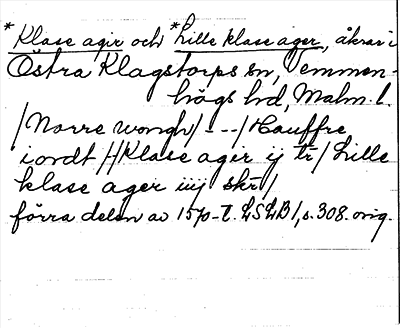 *Klase agir och *Lille klase ager, åkrar i
Östra Klagstorps sn, Vemmen-
högs hd, Malm. l.
/Norre wongh/ - - - /Hauffre
iordt/ /Klase agir ij tr/ Lille
klase ager iiij skr/
förra delen av 1570-t. LSLB1, s. 308. orig.